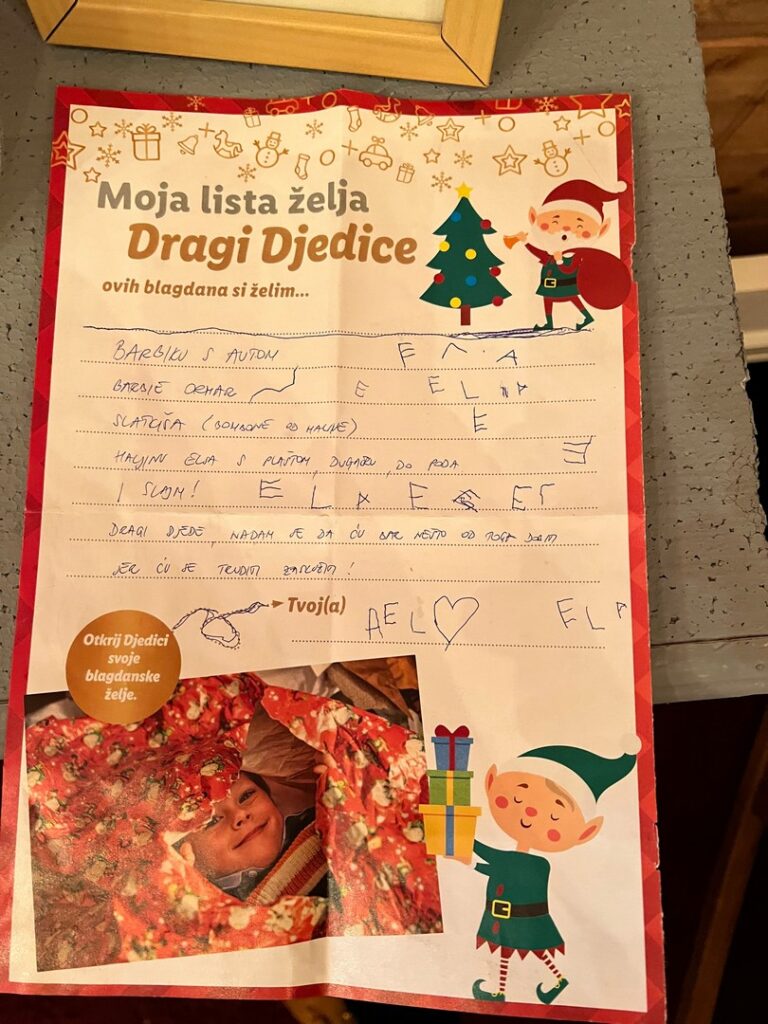 Moja lista želja
Dragi Djedice
ovih blagdana si želim...
BARBIKU S AUTOM E A
BARBIE ORMAR E E L A
SLATKIŠA (BOMBONE OD MALINE) E
HALJINU ELSA S PLAŠTOM, DUGAČKU, DO PODA E
I SLAJM! E L A E E
DRAGI DJEDE, NADAM SE DA ĆU BAR NEŠTO OD TOGA DOBITI
JER ĆU SE TRUDITI ZASLUŽITI!
Tvoj(a) A E L ELA
Otkrij Djedici
svoje
blagdanske
želje.